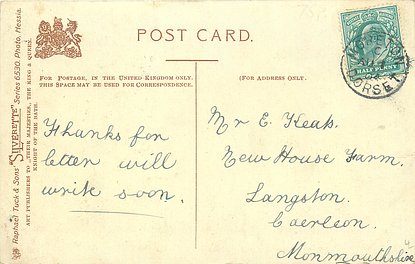 POST CARD.
FOR POSTAGE, IN THE UNITED KINGDOM ONLY,
THIS SPACE MAY BE USED FOR CORRESPONDENCE.
(FOR ADDRESS ONLY.)
HALF PENNY
DORSET
Raphael Tuck & Sons' "SILVERETTE" Series 6530. Photo. Hessia.
ART PUBLISHERS TO THEIR MAJESTIES, THE KING & QUEEN.
KNIGHT OF THE NETS.
Thanks for
letter will
write soon.
Mr E. Keats.
New House Farm.
Langston.
Caerleon.
Monmouthshire